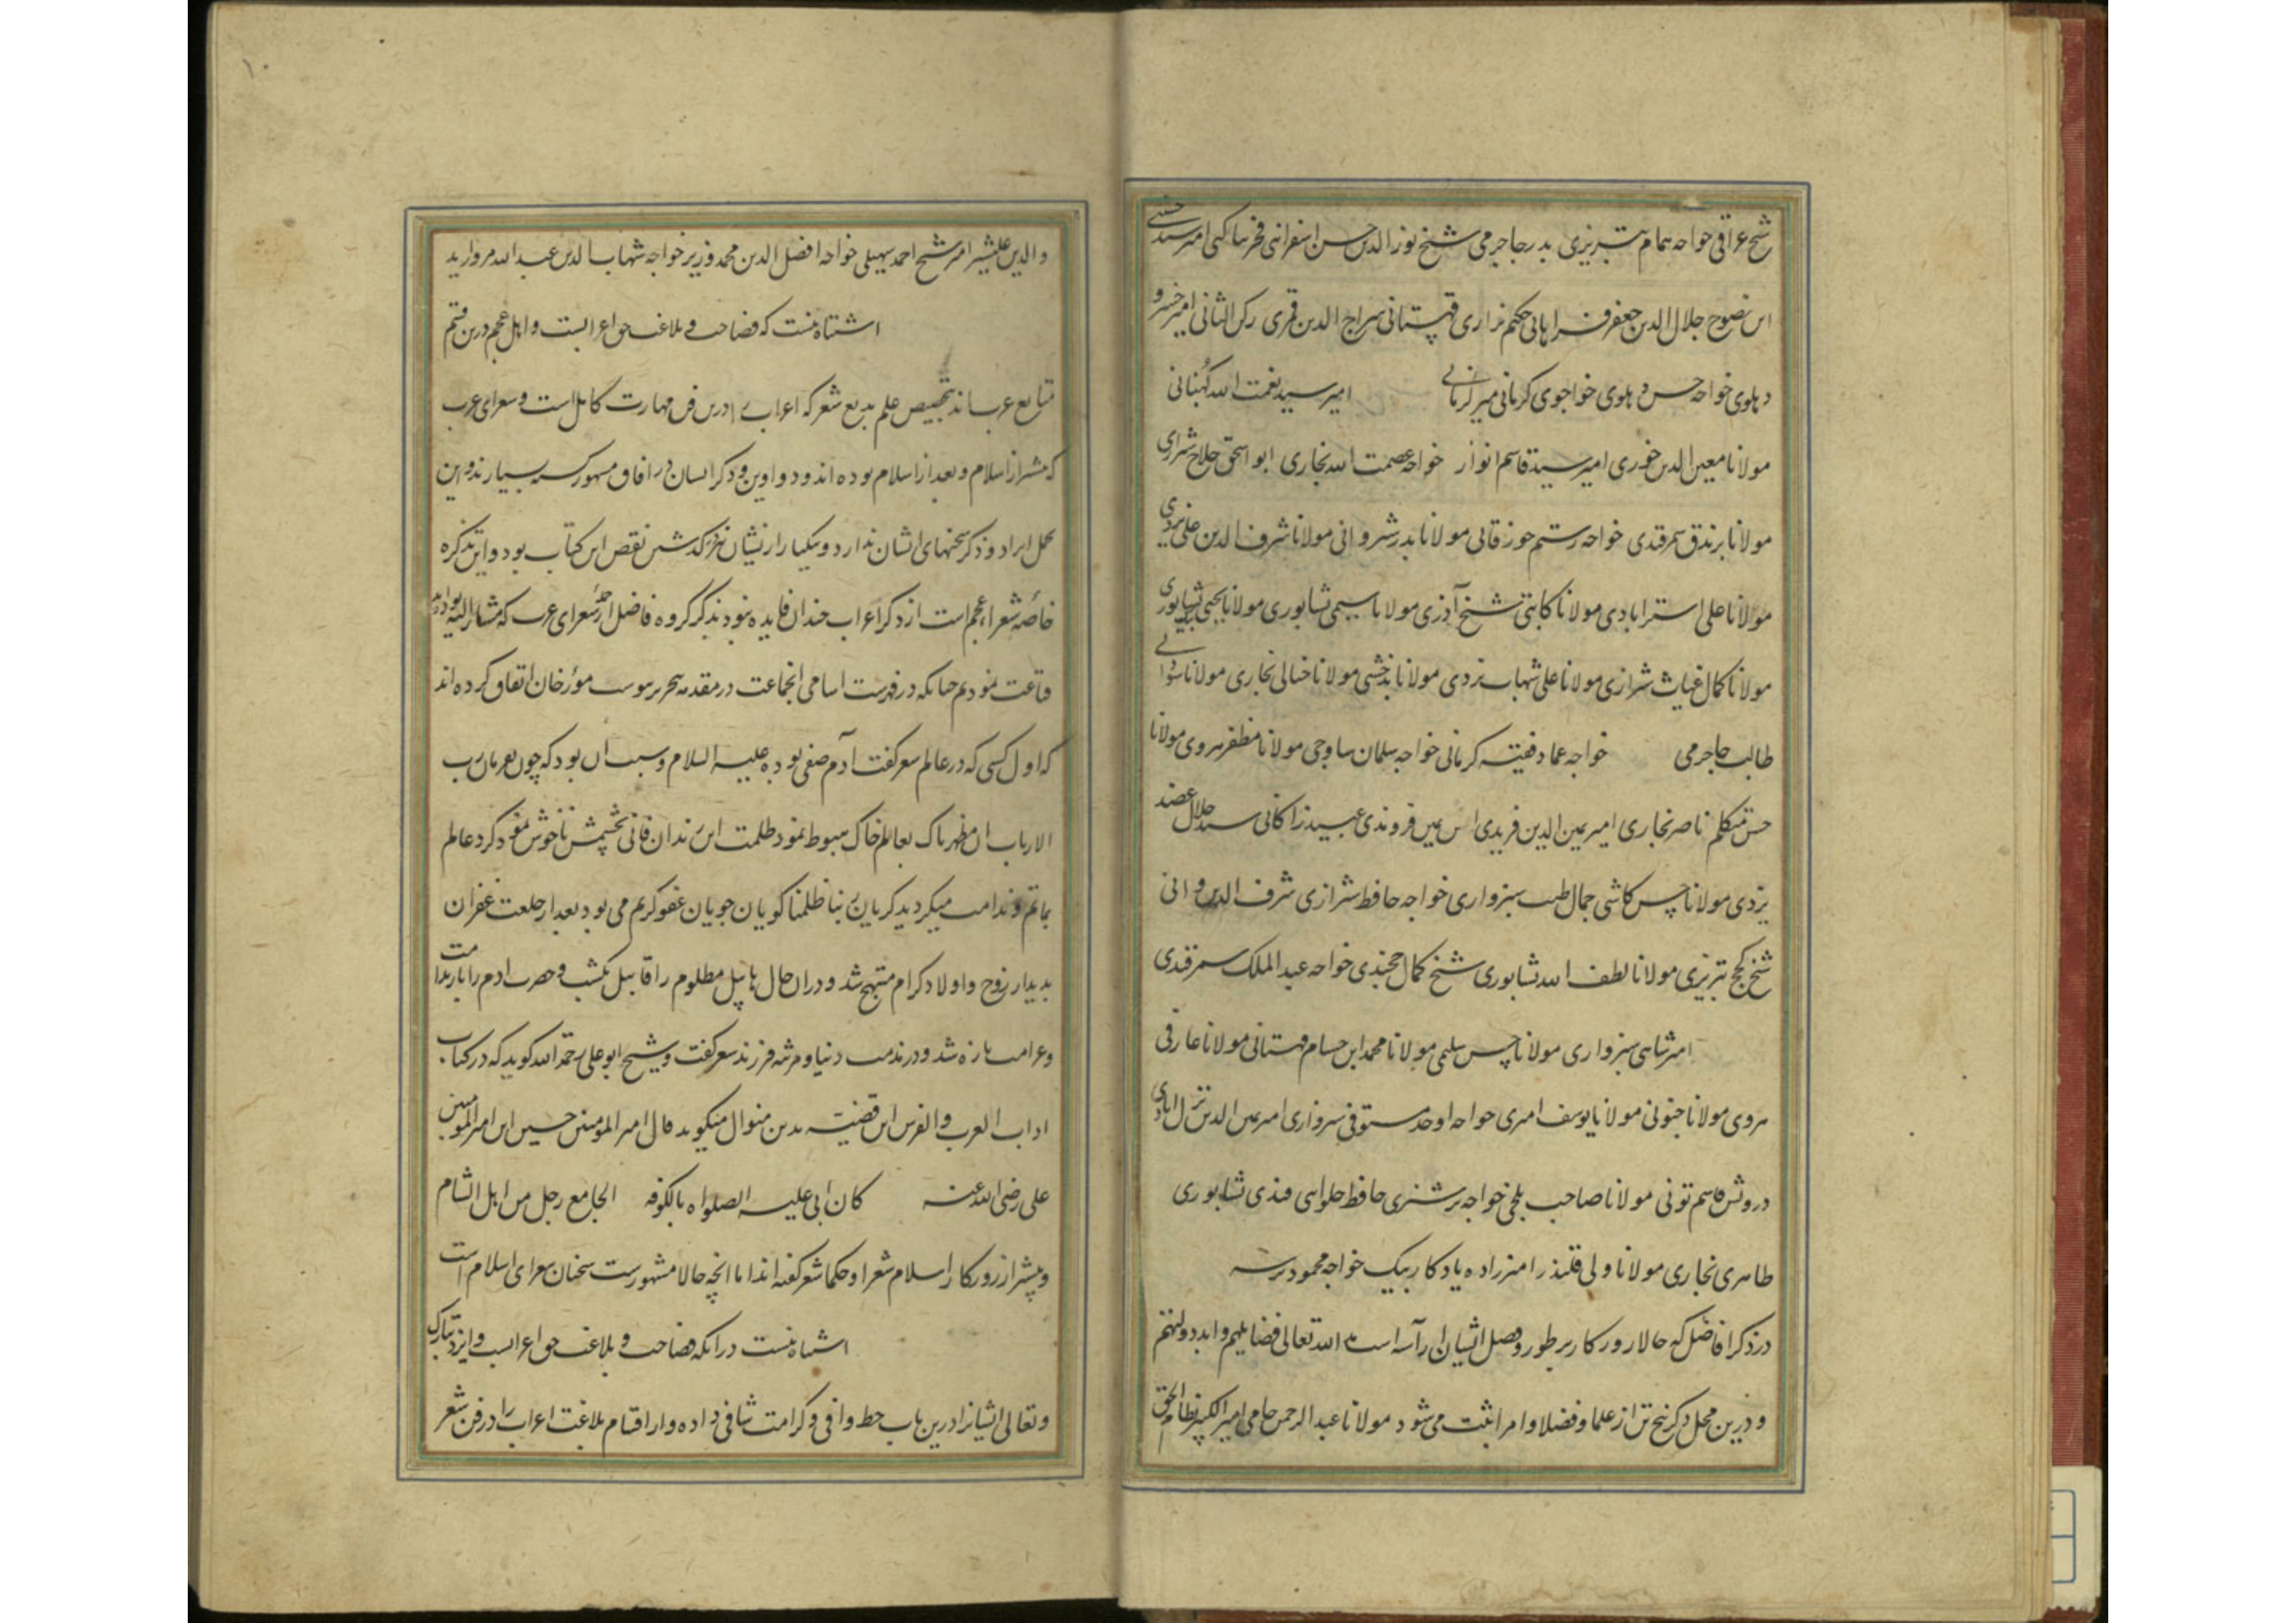 شیخ عراقی خواجه همام تبریزی بدر جاجرمی شیخ نور الدین حسن اسفراینی فخر بناکتی امیر سید حسینی
ابن نصوح جلال الدین جعفر فراهانی حکیم نزاری قهستانی سراج الدین قمری رکن الثانی امیر خسرو
دهلوی خواجه حسن دهلوی خواجوی کرمانی میر کرمانی امیر سید نعمت الله کهنانی
مولانا معین الدین جوری امیر سید قاسم انوار خواجه عصمت الله بخاری ابو اسحق حلاج شیرازی
مولانا برندق سمرقندی خواجه رستم خوزقانی مولانا بدر شروانی مولانا شرف الدین علی یزدی
مولانا علی استرابادی مولانا کاتبی شیخ آذری مولانا سیمی نشابوری مولانا یحیی نشابوری
مولانا کمال غیاث شیرازی مولانا علی شهاب ترمدی مولانا بدخشی مولانا خیالی بخاری مولانا سودائی
طالب جاجرمی خواجه عماد فقیه کرمانی خواجه سلمان ساوجی مولانا مظفر هروی مولانا
حسن متکلم ناصر بخاری امیر یمین الدین فریدی ابن یمین فروندی عبید زاکانی سید جلال عضد
یزدی مولانا حسن کاشی جمال طبیب سبزواری خواجه حافظ شیرازی شرف الدین رانی
شیخ کجج تبریزی مولانا لطف الله نشابوری شیخ کمال خجندی خواجه عبد الملک سمرقندی
امیر شاهی سبزواری مولانا حسن سلیمی مولانا محمد ابن حسام قهستانی مولانا عارفی
هروی مولانا جنونی مولانا یوسف امیری خواجه اوحد مستوفی سبزواری امیر یمین الدین نزل ابادی
درویش قاسم تونی مولانا صاحب بلخی خواجه برشتری حافظ حلوایی قندی نشابوری
طاهری بخاری مولانا ولی قلندر امیرزاده یادکار بیک خواجه محمود برسه
در ذکر افاضل که حالا روزکار بر طور و فضل ایشان آراسته است ادام الله تعالی فضایلهم و ابد دولتهم
و درین محل ذکر پنج تن از علما و فضلا و امرا ثبت می شود مولانا عبد الرحمن جامی امیر الکبیر نظام الحق
و الدین علیشیر امیر شیخ احمد سهیلی خواجه افضل الدین محمد وزیر خواجه شهاب الدین عبد الله مروارید
اشتباه نیست که فصاحت و بلاغت حق اعرابست و اهل عجم درین قسم
متابع عرب اند بتخصیص علم بدیع شعر که اعراب را درین فن مهارت کامل است و شعرای عرب
که پیشتر از اسلام و بعد از اسلام بوده اند و دواوین و ذکر ایشان در افاق مشهور است بسیارند و این
محل ایراد و ذکر سخنهای ایشان ندارد و بیکبار از ایشان نیز گذشتن نقص این کتاب بود و این تذکره
خاصه شعراء عجم است از ذکر اعراب چندان فایده نبود بذکر گروه فاضل از شعرای عرب که مشار الیه بوده اند
قناعت نمودیم چنانکه در فهرست اسامی انجماعت در مقدمه تحریر پیوست مورخان اتفاق کرده اند
که اول کسی که در عالم شعر گفت آدم صفی بوده علیه السلام و سبب ان بود که چون بفرمان رب
الارباب ان مظهر پاک بعالم خاک هبوط نمود ظلمت این زندان فانی بچشمش ناخوش نمود گرد عالم
بماتم و ندامت میگردید گریان ربنا ظلمنا گویان جویان عفو کریم می بود بعد از خلعت غفران
بدیدار زوج و اولاد کرام مبتهج شد و دران حال هابیل مظلوم را قابیل بکشت و حضرت ادم را باز ندامت
و غرامت تازه شد و در مذمت دنیا و مرثیه فرزند شعر گفت و شیخ ابو علی رحمة الله گوید که در کتاب
اداب العرب و الفرس این قضیه بدین منوال میگوید قال امیر المومنین حسین ابن امیر المومنین
علی رضی الله عنه کان ابی علیه الصلواه بالکوفه الجامع رجل من اهل الشام
و پیشتر از روزکار اسلام شعرا و حکما شعر گفته اند اما انچه حالا مشهور است سخنان شعرای اسلام است
اشتباه نیست در انکه فصاحت و بلاغت حق اعرابست و ایزد تبارک
و تعالی ایشانرا درین باب حظ وافی و کرامت شافی داده و از اقسام بلاغت اعراب را در فن شعر